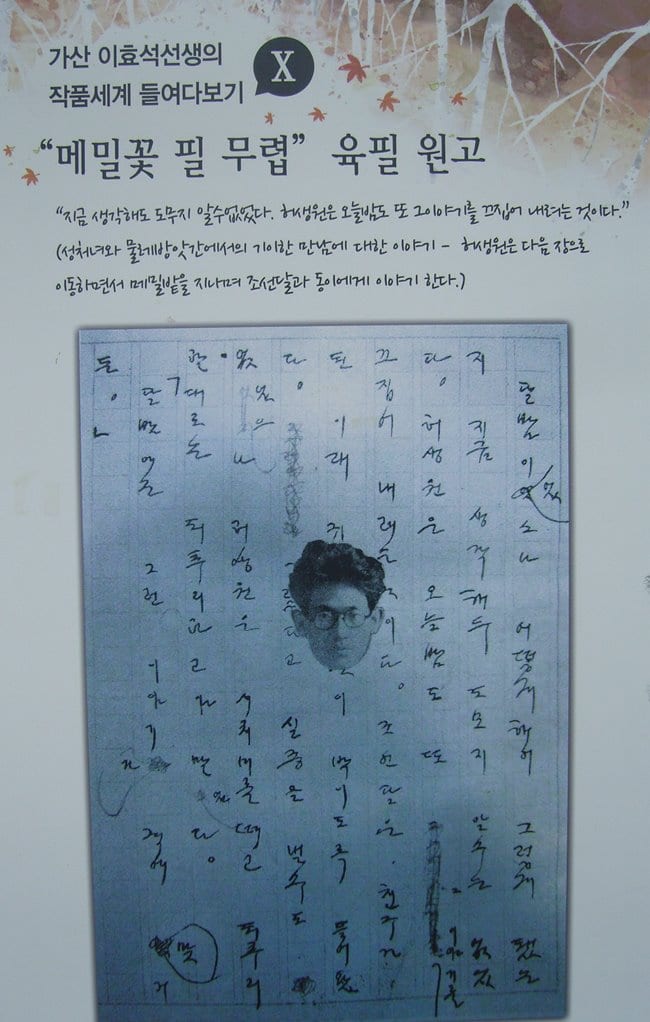 가산 이효석선생의
작품세계 들여다보기
X
“메밀꽃 필 무렵” 육필 원고
“지금 생각해도 도무지 알수없었다. 허생원은 오늘밤도 또 그이야기를 끄집어 내려는 것이다.”
(성처녀와 물레방앗간에서의 기이한 만남에 대한 이야기 - 허생원은 다음 장으로
이동하면서 메밀밭을 지나며 조선달과 동이에게 이야기 한다.)
달밤이었으나 어떻게 해서 그렇게 됐는
지 지금 생각해두 도모지 알수는 없었
다. 허생원은 오늘밤도 또 이야기를
끄집어 내려는 것이다. 조선달은 친구가
된 이래 박이도록 들어왔
다. 실증을 낼수도
없었으나 허생원은 시치미를 떼고 되푸리
할대로는 되푸리하고야 말았다.
「달밤에는 그런 이야기가 격에 맞거
든」